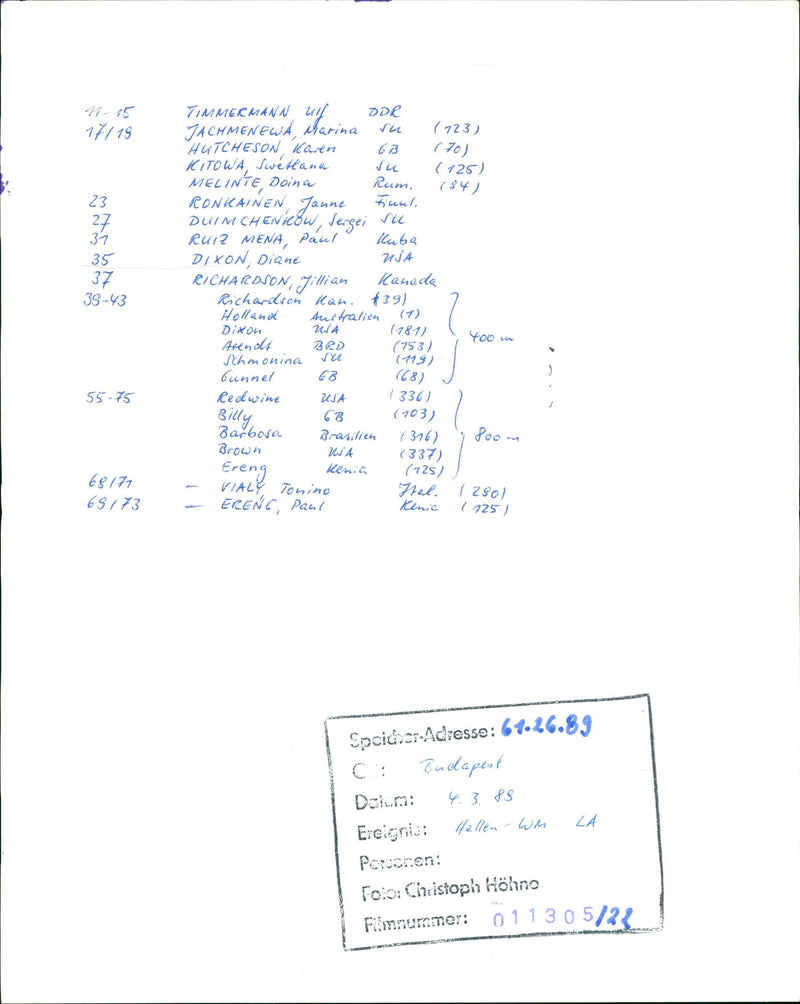 11-15 TIMMERMANN, Ulf DDR
17/19 JACHMENEWA, Marina SU (123)
HUTCHESON, Karen GB (70)
KITOWA, Swetlana SU (125)
MELINTE, Doina Rum. (94)
23 RONKAINEN, Janne Finnl.
27 DUIMCHENKOW, Sergei SU
31 RUIZ MENA, Paul Kuba
35 DIXON, Diane USA
37 RICHARDSON, Jillian Kanada
39-43 Richardson Kan. (39)
Holland Australien (1)
Dixon USA (181)
Arendt BRD (153)
Schmonina SU (119)
Gunnel GB (68)
400 m
55-75 Redwine USA (336)
Billy GB (103)
Barbosa Brasilien (316)
Brown USA (337)
Ereng Kenia (125)
800 m
69/71 - VIALY, Tonino Ital. (290)
69/73 - ERENG, Paul Kenia (125)
Speicher-Adresse: 61.26.89
Budapest
Datum: 4. 3. 89
Ereignis: Hallen-WM LA
Personen:
Foto: Christoph Höhne
Filmnummer: 011305/22